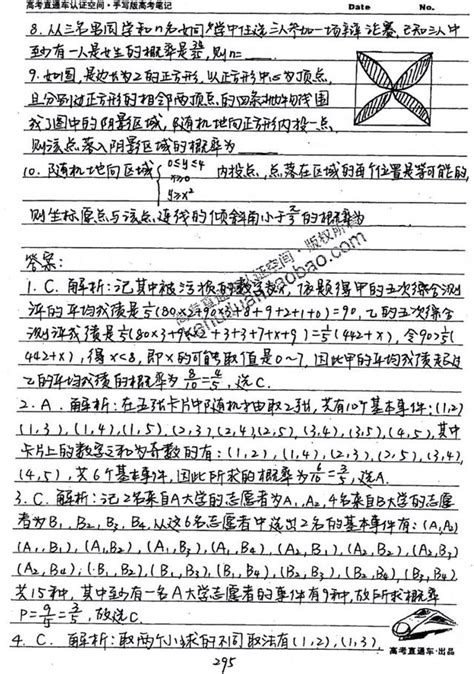 高考直通车认证空间·手写版高考笔记 Date No.
8. 从三名男同学和n名女同学中任选三人参加一场辩论赛,已知三人中
至少有一人是女生的概率是 ,则n=
9. 如图,是边长为2的正方形,以正方形中心为顶点,
且分别过正方形的相邻两顶点的四条抛物线围
成了图中的阴影区域,随机地向正方形内投一点,
则该点落入阴影区域的概率为
10. 随机地向区域{0≤y≤4 x≥0 y≥x² 内投点,点落在区域的每个位置是等可能的,
则坐标原点与该点连线的倾斜角小于 的概率为
答案:
1. C. 解析:记其中被污损的数字为x,依题得甲的五次综合测
评的平均成绩是1/5(80×2+90×3+8+9+2+1+0)=90,乙的五次综合
测评成绩是1/5(80×3+90×2+3+3+7+x+9)=1/5(442+x),令90>1/5
(442+x),得x<8,即x的可能取值是0~7,因此甲的平均成绩超过
乙的平均成绩的概率为8/10=4/5,选C.
2. A. 解析:在五张卡片中随机抽取2张,共有10个基本事件:(1,2)
(1,3),(1,4),(1,5),(2,3),(2,4)(2,5),(3,4),(3,5),(4,5),其中
卡片上的数字之和为奇数的有:(1,2),(1,4),(2,3),(2,5),(3,4)
(4,5),共6个基本事件,因此所求的概率为6/10=3/5,选A.
3. C. 解析:记2名来自A大学的志愿者为A₁,A₂,4名来自B大学的志愿
者为B₁,B₂,B₃,B₄.从这6名志愿者中选出2名的基本事件有:(A₁,A₂)
(A₁,B₁),(A₁,B₂),(A₁,B₃),(A₁,B₄),(A₂,B₁),(A₂,B₂),(A₂,B₃)
(A₂,B₄),(B₁,B₂),(B₁,B₃),(B₁,B₄),(B₂,B₃),(B₂,B₄),(B₃,B₄).
共15种,其中至少有一名A大学志愿者的事件有9种,故所求概率
P=9/15=3/5,故选C.
4. C. 解析:取两个小球的不同取法有(1,2),(1,3),
高考直通车·出品
295